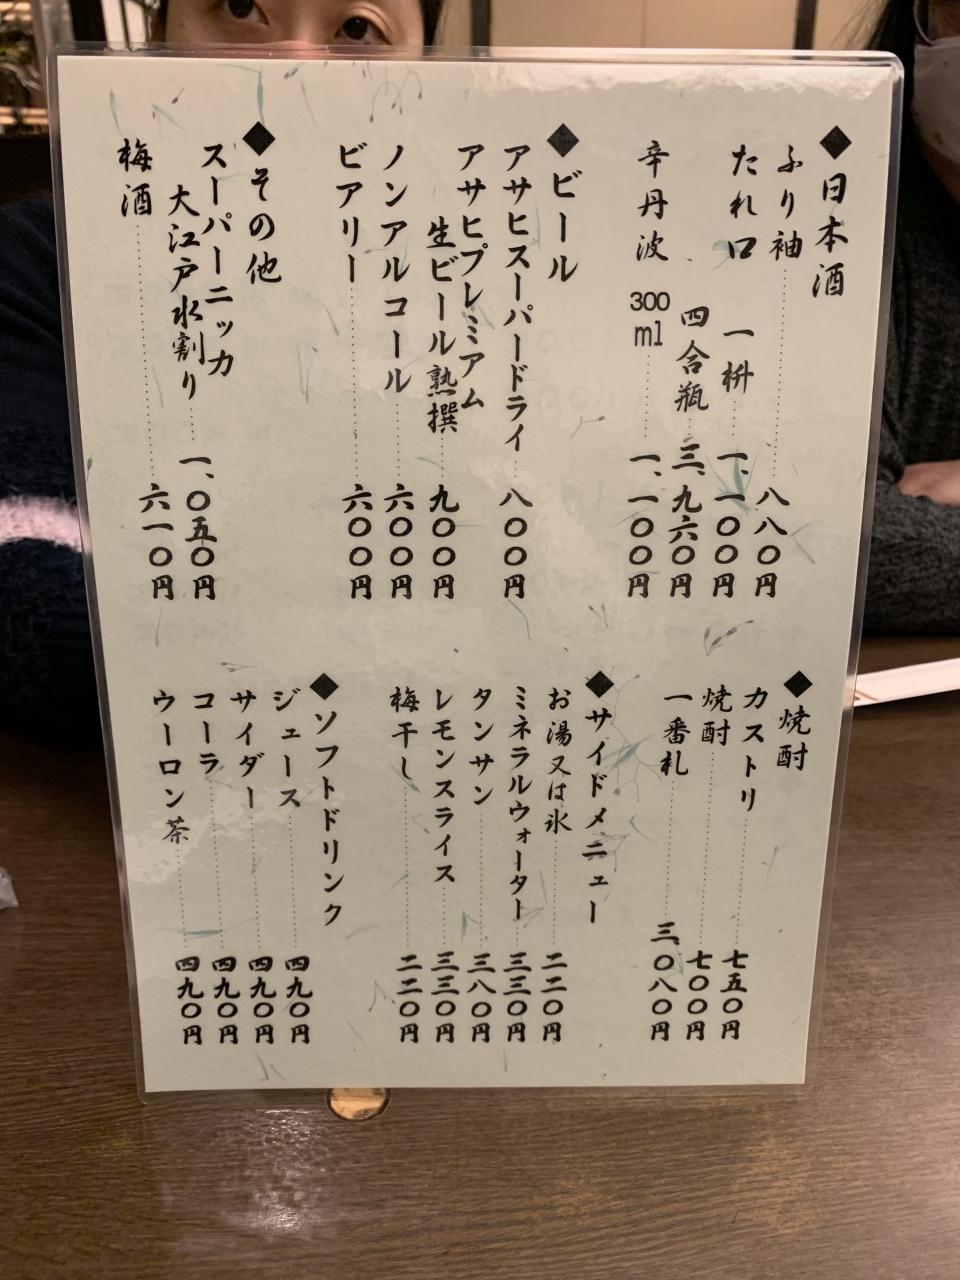 ◆日本酒
ふり袖 八八〇円
たれ口 一枡 一、一〇〇円
四合瓶 三、九六〇円
辛丹波 300ml 一、一〇〇円
◆ビール
アサヒスーパードライ 八〇〇円
アサヒプレミアム
生ビール熟撰 九〇〇円
ノンアルコール 六〇〇円
ビアリー 六〇〇円
◆その他
スーパーニッカ
大江戸水割り 一、〇五〇円
梅酒 六一〇円
◆焼酎
カストリ 七五〇円
焼酎 七〇〇円
一番札 三、〇八〇円
◆サイドメニュー
お湯又は氷 二二〇円
ミネラルウォーター 三三〇円
タンサン 三八〇円
レモンスライス 三三〇円
梅干し 二二〇円
◆ソフトドリンク
ジュース 四九〇円
サイダー 四九〇円
コーラ 四九〇円
ウーロン茶 四九〇円